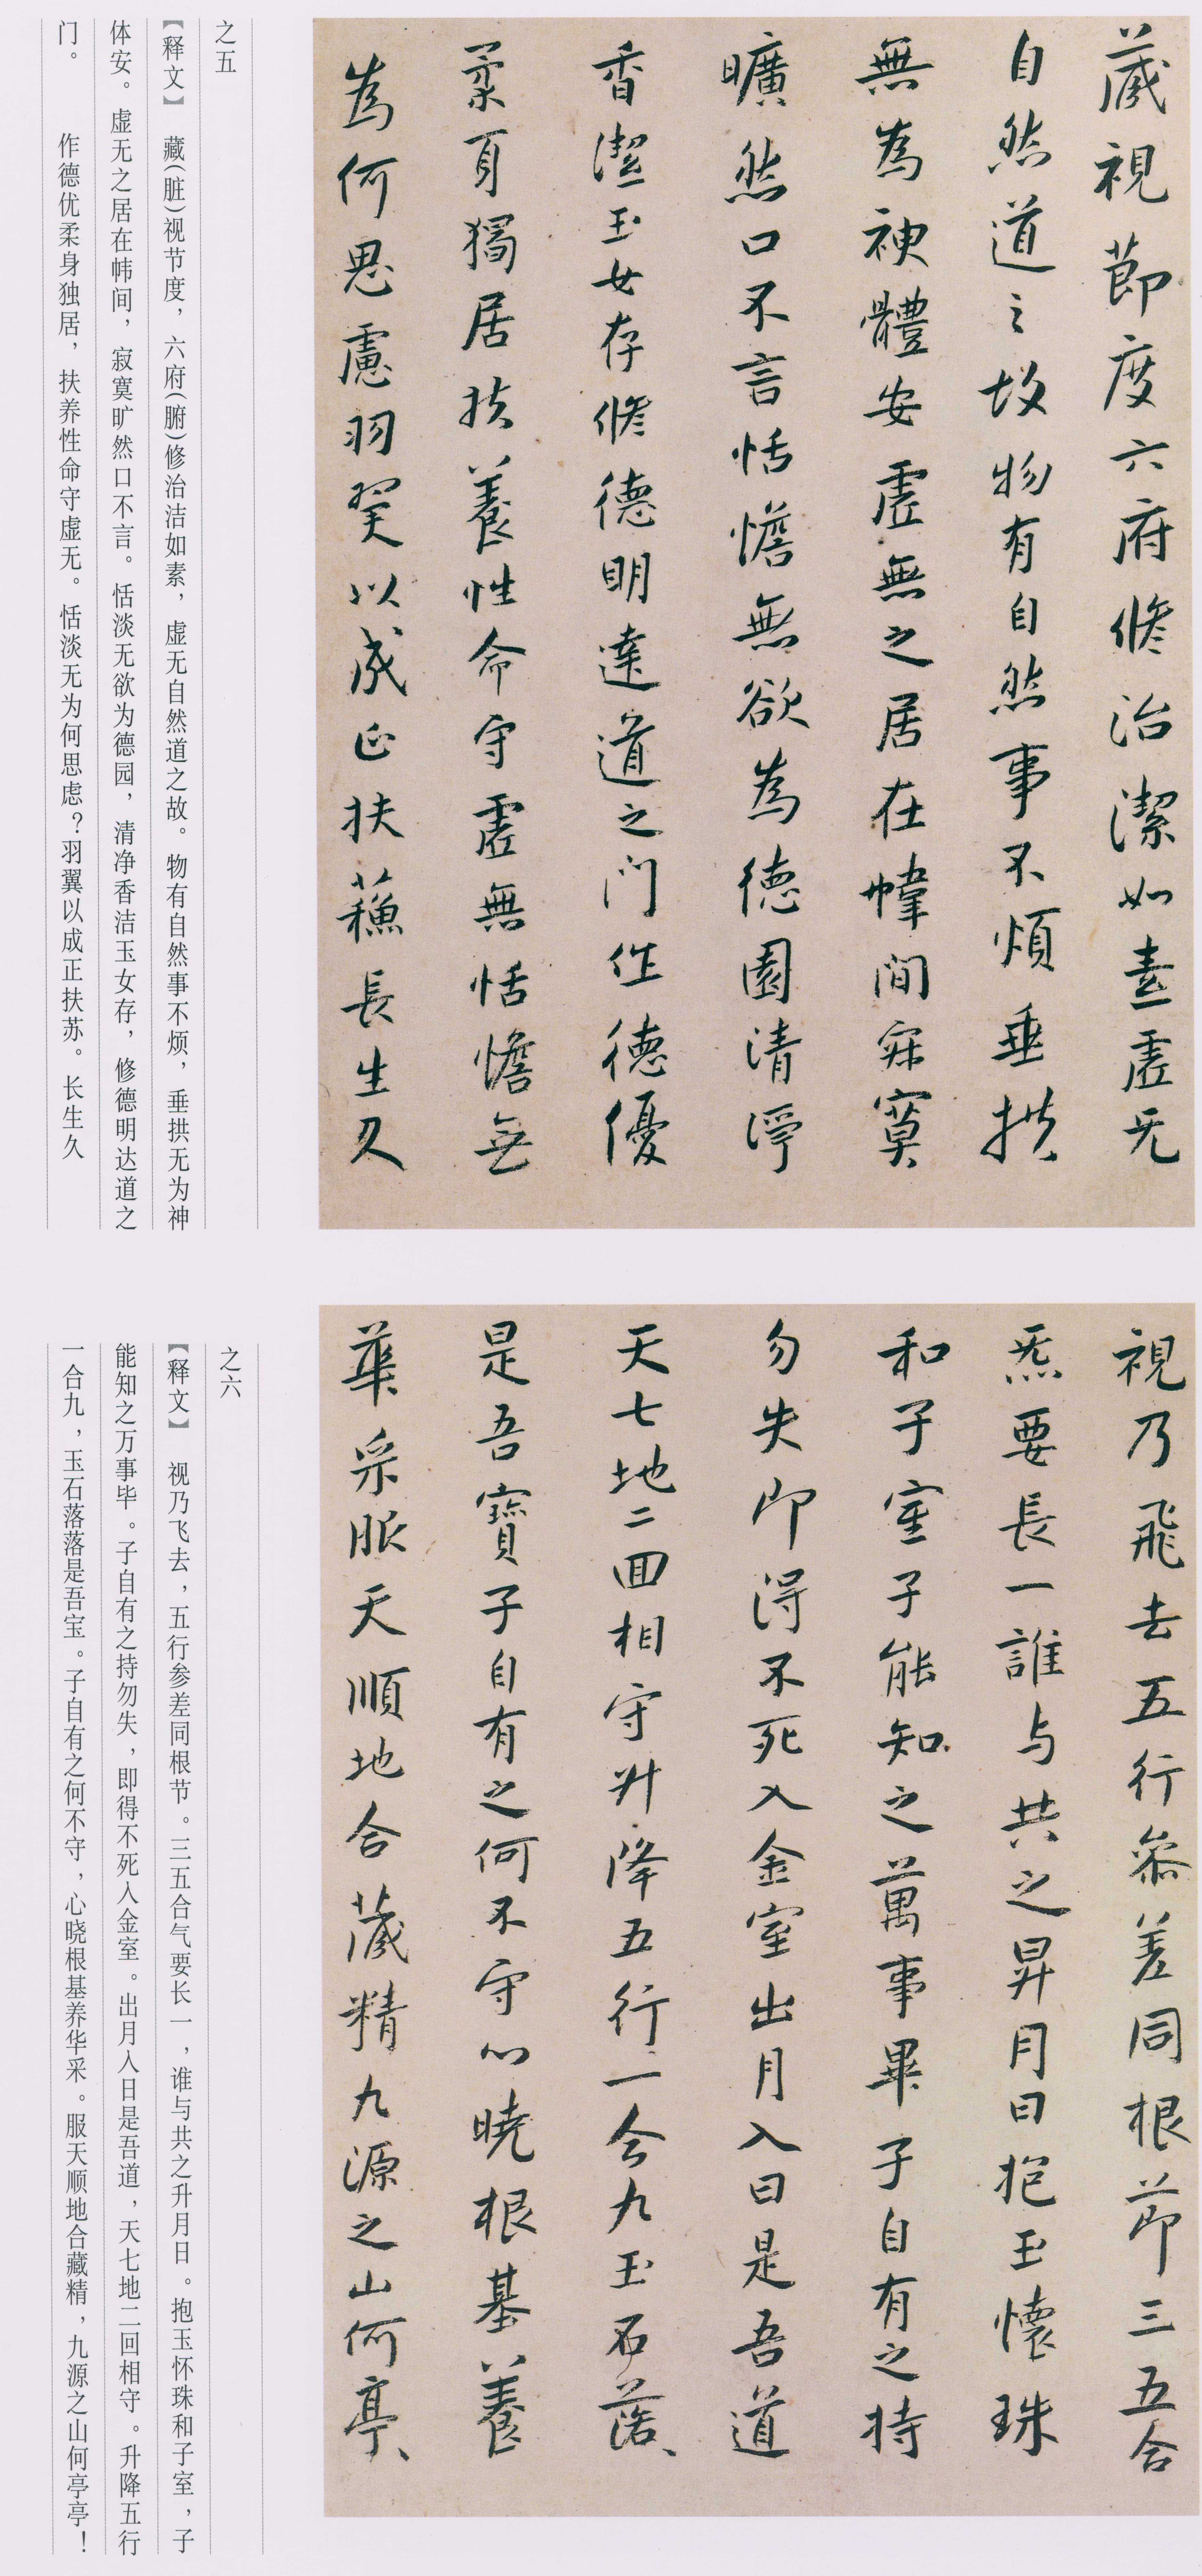 藏視節度六府修治潔如素虛无
自然道之故物有自然事不煩垂拱
無為神體安虛無之居在幃間寂寞
曠然口不言恬憺無欲為德園清淨
香潔玉女存修德明達道之门作德優
柔身獨居扶養性命守虛無恬憺無
為何思慮羽翼以成正扶蘓長生久
之五
【释文】 藏(脏)视节度，六府(腑)修治洁如素，虚无自然道之故。物有自然事不烦，垂拱无为神
体安。虚无之居在帏间，寂寞旷然口不言。恬淡无欲为德园，清净香洁玉女存，修德明达道之
门。 作德优柔身独居，扶养性命守虚无。恬淡无为何思虑？羽翼以成正扶苏。长生久
視乃飛去五行叅差同根節三五合
炁要長一誰与共之昇月日抱玉懷珠
和子室子能知之萬事畢子自有之持
勿失即得不死入金室出月入日是吾道
天七地二囬相守升降五行一合九玉石落、
是吾寶子自有之何不守心曉根基養
華采服天順地合藏精九源之山何亭、
之六
【释文】 视乃飞去，五行参差同根节。三五合气要长一，谁与共之升月日。抱玉怀珠和子室，子
能知之万事毕。子自有之持勿失，即得不死入金室。出月入日是吾道，天七地二回相守。升降五行
一合九，玉石落落是吾宝。子自有之何不守，心晓根基养华采。服天顺地合藏精，九源之山何亭亭！